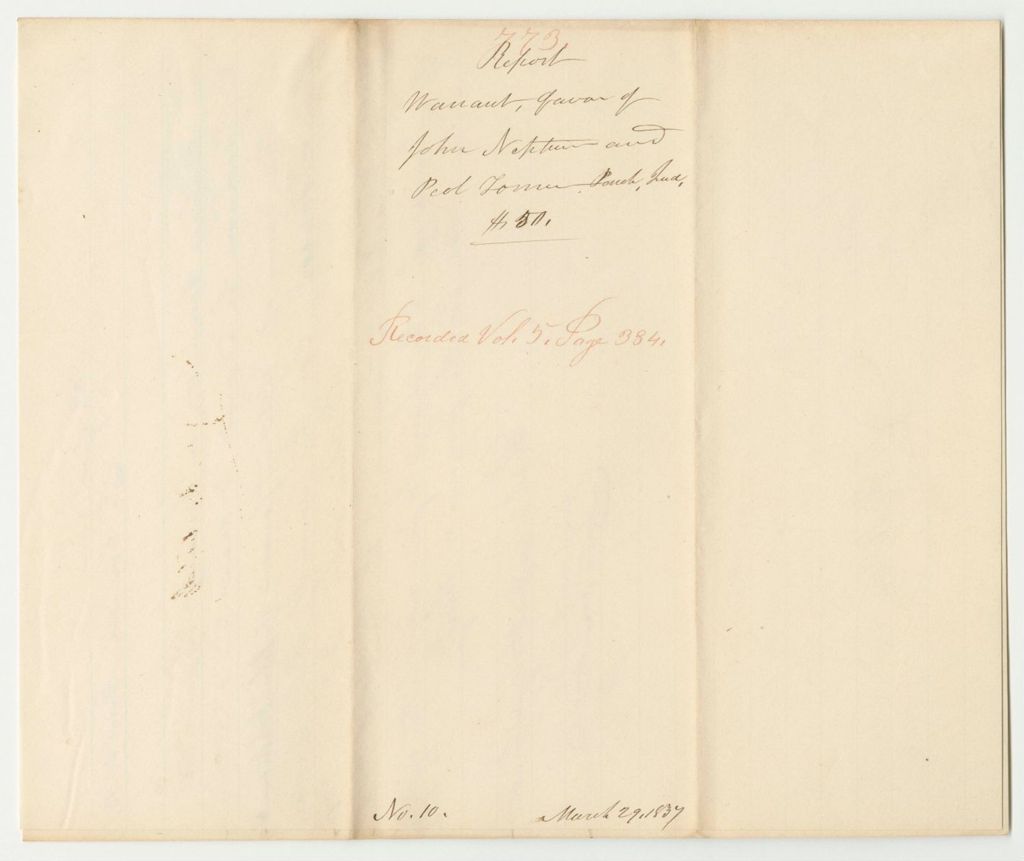 773.
Report
Warrant, favor of
John Neptune and
Peol Tomer Penob, Ind,
$50.
Recorded Vol. 5. Page 334.
No. 10.
March 29, 1837